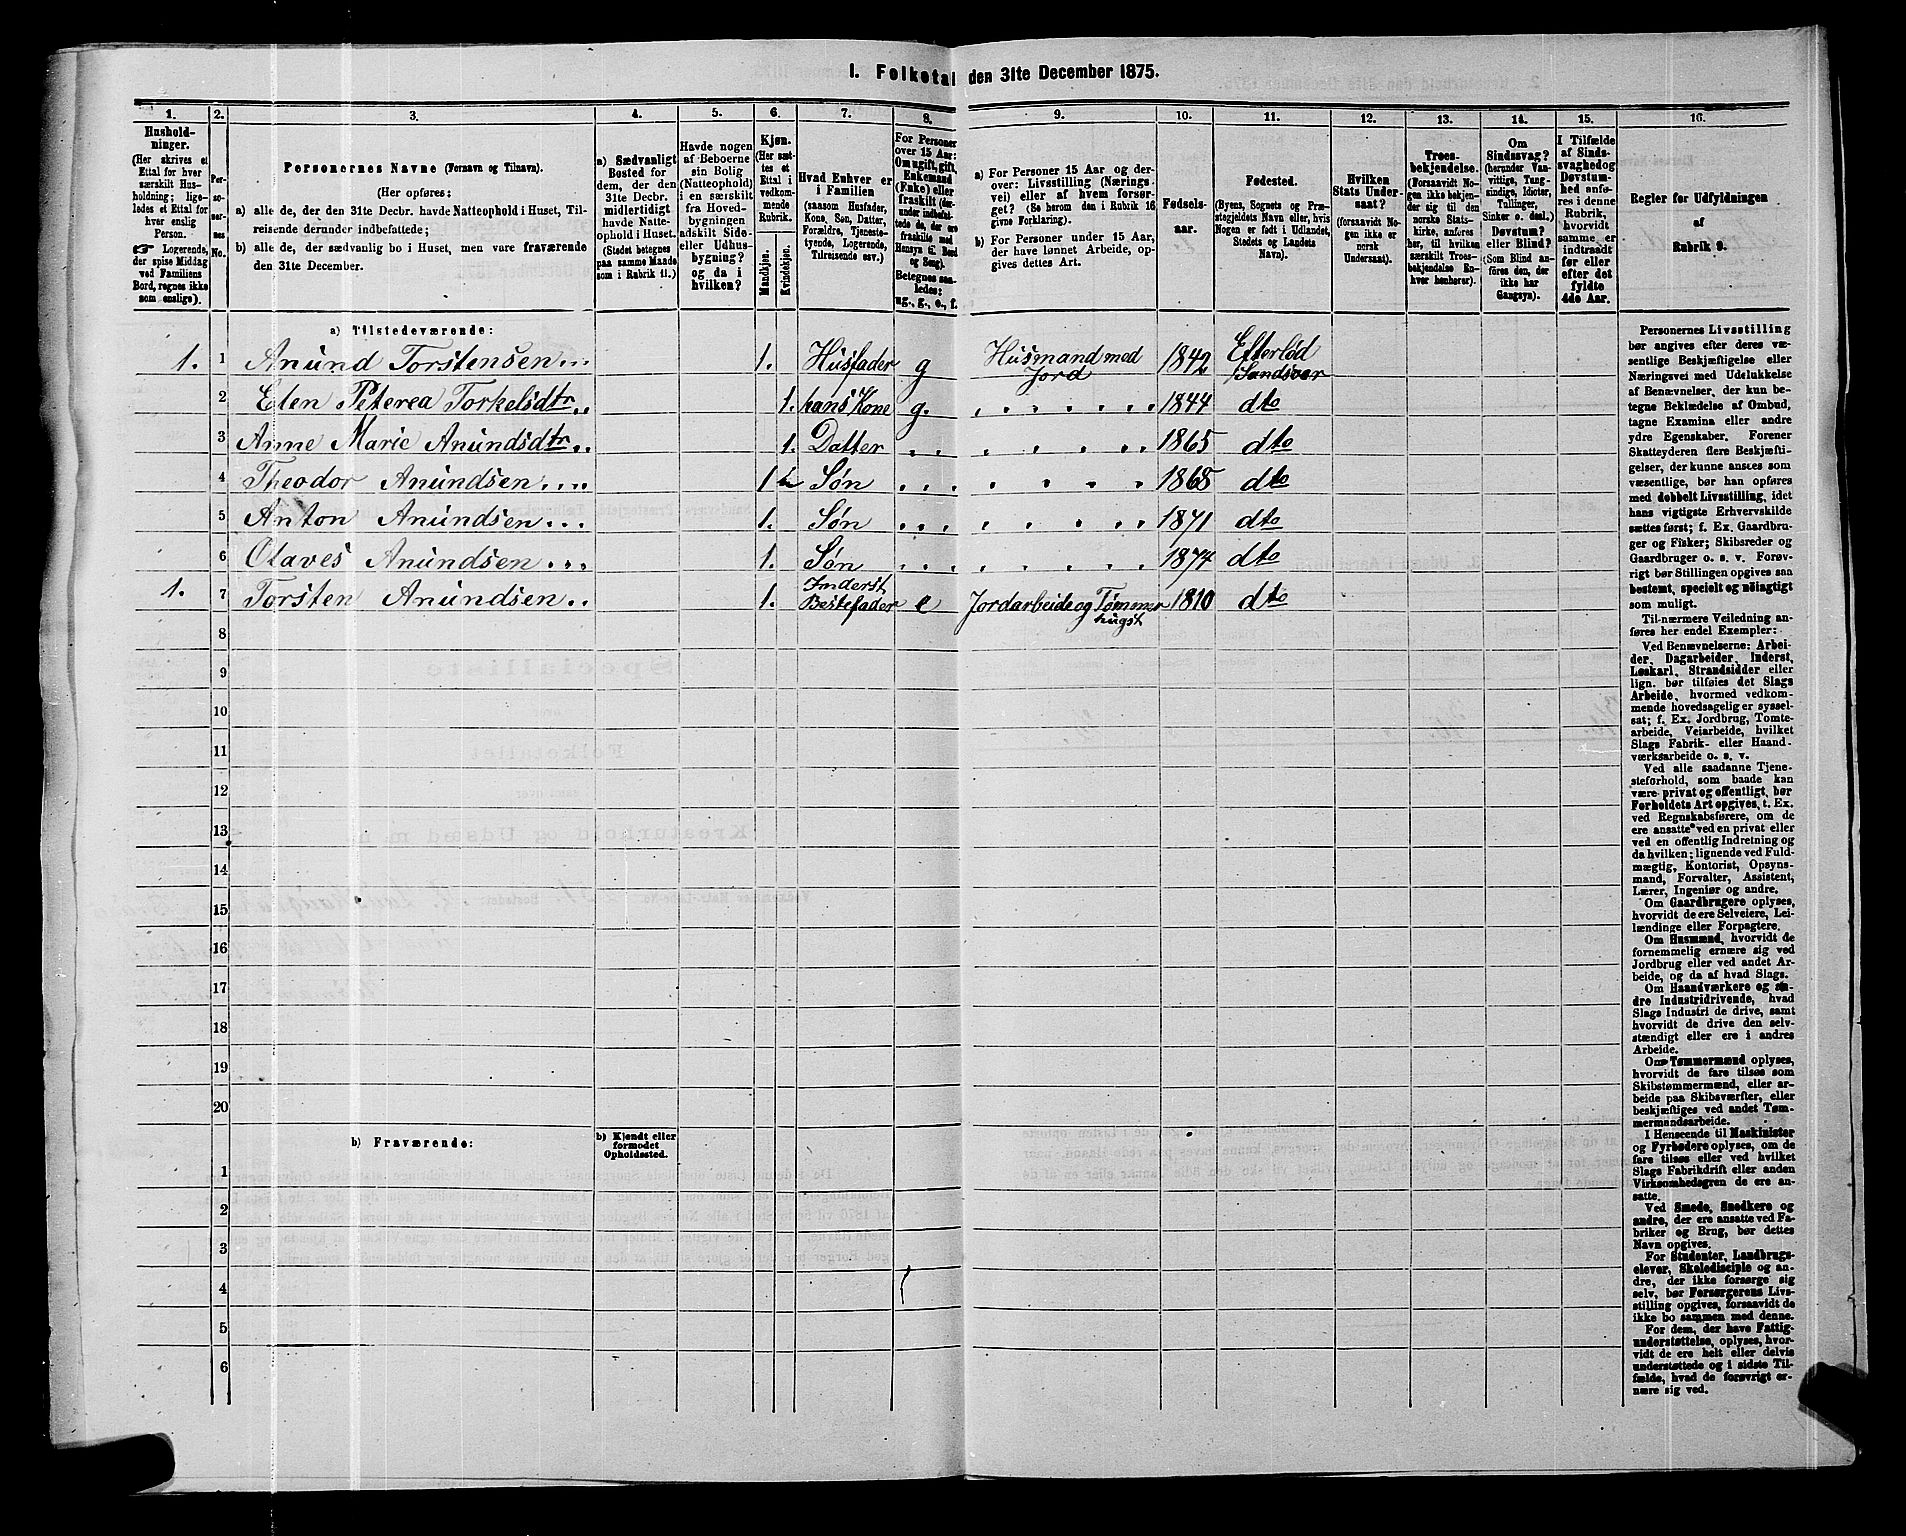 I. Folketal den 31te December 1875.
1.
Hushold-
ninger.
(Her skrives et
Ettal for hver
særskilt Hus-
holdning; lige-
ledes et Ettal for
hver enslig
Person.
Logerende,
der spise Middag
ved Familiens
Bord, regnes ikke
som enslige).
2.
Per-
so-
ner-
nes
No.
3.
Personernes Navne (Fornavn og Tilnavn).
(Her opføres:
a) alle de, der den 31te Decbr. havde Natteophold i Huset, Til-
reisende derunder indbefattede;
b) alle de, der sædvanlig bo i Huset, men vare fraværende
den 31te December.
4.
a) Sædvanligt
Bosted for
dem, der den
31te Decbr.
midlertidigt
havde Natte-
ophold i Huset.
(Stedet betegnes
paa samme Maade
som i Rubrik 11.)
5.
Havde nogen
af Beboerne
sin Bolig
(Natteophold)
i en særskilt
fra Hoved-
bygningen
adskilt Side-
eller Udhus-
bygning?
og da i
hvilken?
6.
Kjøn.
(Her sæt-
tes et
Ettal i
vedkom-
mende
Rubrik.
Mandkjøn.
Kvindekjøn.
7.
Hvad Enhver er
i Familien
(saasom Husfader,
Kone, Søn, Datter,
Forældre, Tjeneste-
tyende, Logerende,
Tilreisende osv.)
8.
For Personer
over 15 Aar:
Om ugift, gift,
Enkemand
(Enke) eller
fraskilt (der-
under indbefat-
tede de, der ere
fraskilte med
Hensyn til Bord
og Seng).
Betegnes saa-
ledes:
ug., g., e., f.
9.
a) For Personer 15 Aar og der-
over: Livsstilling (Nærings-
vei) eller af hvem forsør-
get? (Se herom den i Rubrik 16
givne Forklaring).
b) For Personer under 15 Aar,
der have lønnet Arbeide, op-
gives dettes Art.
10.
Fødsels-
aar.
11.
Fødested.
(Byens, Sognets eller Præ-
stegjeldets Navn eller, hvis
Nogen er født i Udlandet,
Stedets og Landets
Navn).
12.
Hvilken
Stats Under-
saat?
(forsaavidt No-
gen ikke er
norsk
Undersaat).
13.
Troes-
bekjendelse.
(Forsaavidt No-
gen ikke bekjen-
der sig til den
norske Stats-
kirke, anføres
her, til hvilken
særskilt Troes-
bekjendelse En-
hver henhører).
14.
Om
Sindssvag?
(herunder Van-
vittige, Tung-
sindige, Idioter,
Tullinger,
Sinker o. desl.)
Døvstum?
eller Blind?
(Som Blind an-
føres den, der
ikke har
Gangsyn).
15.
I Tilfælde
af Sinds-
svaghed og
Døvstum-
hed anfø-
res i denne
Rubrik,
hvorvidt
samme er
indtraadt
før eller
efter det
fyldte
4de Aar.
16.
Regler for Udfyldningen
af
Rubrik 9.
a) Tilstedeværende:
1. 1 Anund Torstensen... 1. Husfader g Husmand med Jord 1842 Efterlød Sandsvær
2 Elen Peterea Torkelsdtr.. 1. hans Kone g. 1844 dto
3 Anne Marie Anundsdtr.. 1. Datter 1865 dto
4 Theodor Anundsen.... 1 Søn 1868 dto
5 Anton Anundsen... 1. Søn 1871 dto
6 Olaves Anundsen... 1. Søn 1874 dto
1. 7 Torsten Anundsen.. 1. Inderst Bestefader e Jordarbeide og Tømmerhugst 1810 dto
8
9
10
11
12
13
14
15
16
17
18
19
20
b) Fraværende:
b) Kjendt eller
formodet
Opholdssted.
1
2
3
4
5
6
Personernes Livsstilling
bør angives efter deres væ-
sentlige Beskjæftigelse eller
Næringsvei med Udelukkelse
af Benævnelser, der kun be-
tegne Beklædelse af Ombud,
tagne Examina eller andre
ydre Egenskaber. Forener
Skatteyderen flere Beskjæfti-
gelser, der kunne ansees som
væsentlige, bør han opføres
med dobbelt Livsstilling, idet
hans vigtigste Erhvervskilde
sættes først; f. Ex. Gaardbru-
ger og Fisker; Skibsreder og
Gaardbruger o. s. v. Forøv-
rigt bør Stillingen opgives saa
bestemt, specielt og nøiagtigt
som muligt.
Til nærmere Veiledning an-
føres her endel Exempler:
Ved Benævnelserne: Arbei-
der, Dagarbeider, Inderst,
Løskarl, Strandsidder eller
lign. bør tilføies det Slags
Arbeide, hvormed vedkom-
mende hovedsagelig er syssel-
sat; f. Ex. Jordbrug, Tomte-
arbeide, Veiarbeide, hvilket
Slags Fabrik- eller Haand-
værksarbeide o. s. v.
Ved alle saadanne Tjene-
steforhold, som baade kan
være privat og offentligt, bør
Forholdets Art opgives, t. Ex.
ved Regnskabsførere, om de
ere ansatte ved en privat eller
ved en offentlig Indretning og
da hvilken; lignende ved Fuld-
mægtig, Kontorist, Opsyns-
mand, Forvalter, Assistent,
Lærer, Ingeniør og andre.
Om Gaardbrugere oplyses,
hvorvidt de ere Selveiere, Lei-
lændinge eller Forpagtere.
Om Husmænd, hvorvidt de
fornemmelig ernære sig ved
Jordbrug eller ved andet Ar-
beide, og da af hvad Slags.
Om Haandværkere og an-
dre Industridrivende, hvad
Slags Industri de drive, samt
hvorvidt de drive den selv-
stændigt eller ere i andres
Arbeide.
Om Tømmermænd oplyses,
hvorvidt de fare tilsøs som
Skibstømmermænd, eller ar-
beide paa Skibsværfter, eller
beskjæftiges ved andet Tøm-
mermandsarbeide.
I Henseende til Maskinister
og Fyrbødere oplyses, om de
fare tilsøs eller ved hvilket
Slags Fabrikdrift eller anden
Virksomhedsgren de ere an-
satte.
Ved Smede, Snedkere og
andre, der ere ansatte ved Fa-
briker og Brug, bør dettes
Navn opgives.
For Studenter, Landbrugs-
elever, Skoledisciple og an-
dre, der ikke forsørge sig
selv, bør Forsørgerens Livs-
stilling opgives, forsaavidt de
ikke bo sammen med denne.
For dem, der have Fattig-
understøttelse, oplyses, hvor-
vidt de ere helt eller delvis
understøttede og i sidste Til-
fælde, hvad de forøvrigt er-
nære sig ved.